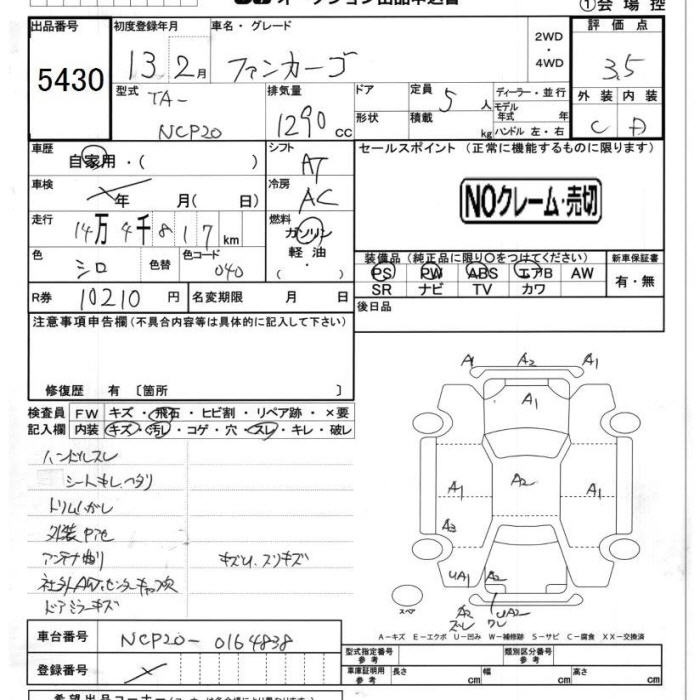 ①会場控
出品番号 5430
初度登録年月 13.2月
車名・グレード ファンカーゴ
2WD ・ 4WD
評価点 3.5
型式 TA- NCP20
排気量 1290 CC
ドア
形状
定員 5 人
積載 kg
ディーラー・並行
モデル年式 年式
ハンドル 左・右
外装 内装
C D
車歴 自家用・( )
シフト AT
セールスポイント (正常に機能するものに限ります)
NOクレーム・売切
車検 年 月( 日)
冷房 AC
走行 14万4千817km
燃料 ガソリン
軽油
・( )
色 シロ
色替
色コード 040
装備品 (純正品に限り○をつけてください)
PS PW ABS エアB AW
SR ナビ TV カワ
新車保証書
有・無
R券 10210 円
名変期限 月 日
後日品
注意事項申告欄 (不具合内容等は具体的に記入して下さい)
修復歴 有 〔箇所 〕
検査員 FW キズ・飛石・ヒビ割・リペア跡・×要
記入欄 内装 キズ・汚レ・コゲ・穴・スレ・キレ・破レ
ハンドルスレ
シートもしヘタリ
外装
アンテナ
キズU、スリキズ
ドアミラーキズ
A1 A2 A1
A1
A1 A2 A1
A3
UA1 A2
A2 ズレ UA2 ワレ
スペア
A－キズ E－エクボ U－凹み W－補修跡 S－サビ C－腐食 XX－交換済
車台番号 NCP20-0164838
登録番号
型式指定番号 参考
類別区分番号 参考
車庫証明用 参考 長さ cm 幅 cm 高さ cm